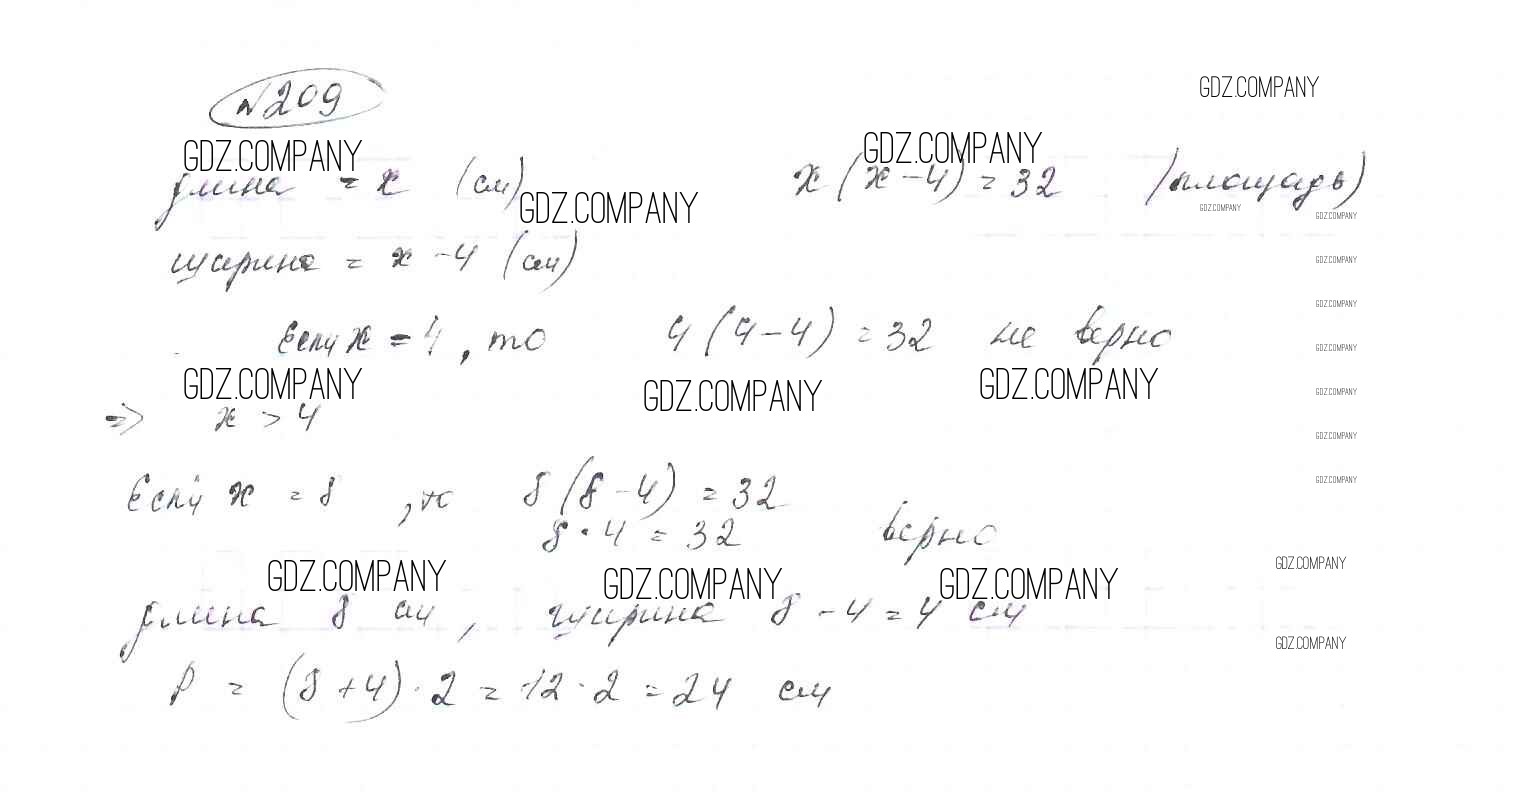 №209
GDZ.COMPANY
GDZ.COMPANY GDZ.COMPANY
длина = x (см) x(x-4) = 32 (площадь)
GDZ.COMPANY GDZ.COMPANY GDZ.COMPANY
ширина = x - 4 (см) GDZ.COMPANY
GDZ.COMPANY
Если x = 4, то 4(4-4) = 32 не верно GDZ.COMPANY
GDZ.COMPANY GDZ.COMPANY GDZ.COMPANY GDZ.COMPANY
=> x > 4 GDZ.COMPANY
GDZ.COMPANY
Если x = 8, то 8(8-4) = 32
8·4 = 32 верно
GDZ.COMPANY GDZ.COMPANY GDZ.COMPANY GDZ.COMPANY
длина 8 см, ширина 8-4=4 см
GDZ.COMPANY
P = (8+4)·2 = 12·2 = 24 см